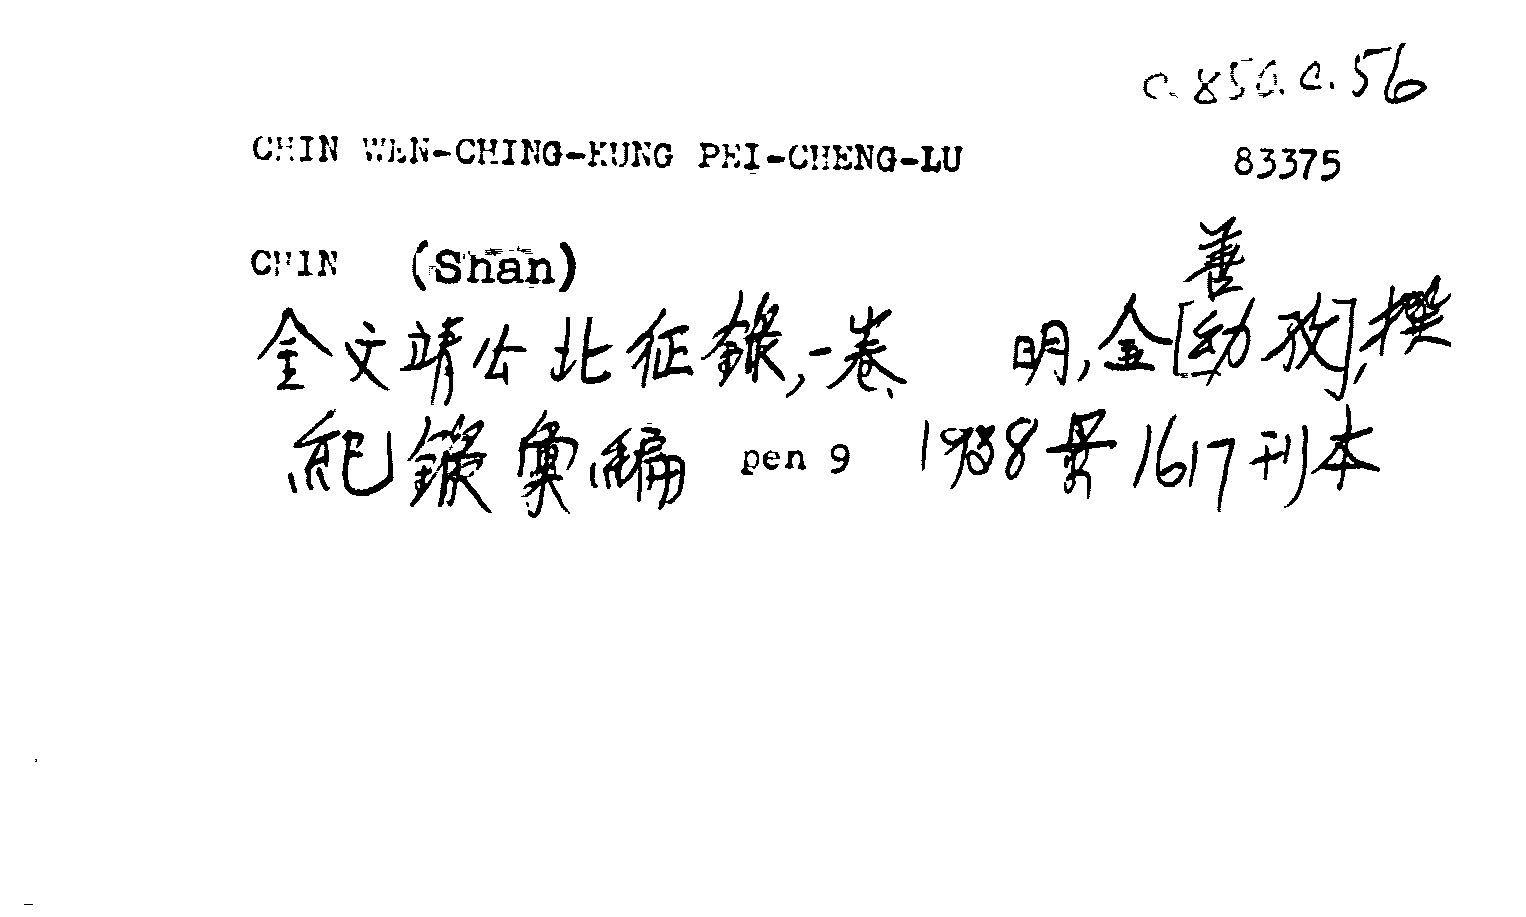 c.850.c.56
CHIN WEN-CHING-KUNG PEI-CHENG-LU 83375
善
CHIN (Shan)
金文靖公北征錄,一卷 明,金[幼孜],撰
紀錄彙編 pen 9 1938景1617刊本